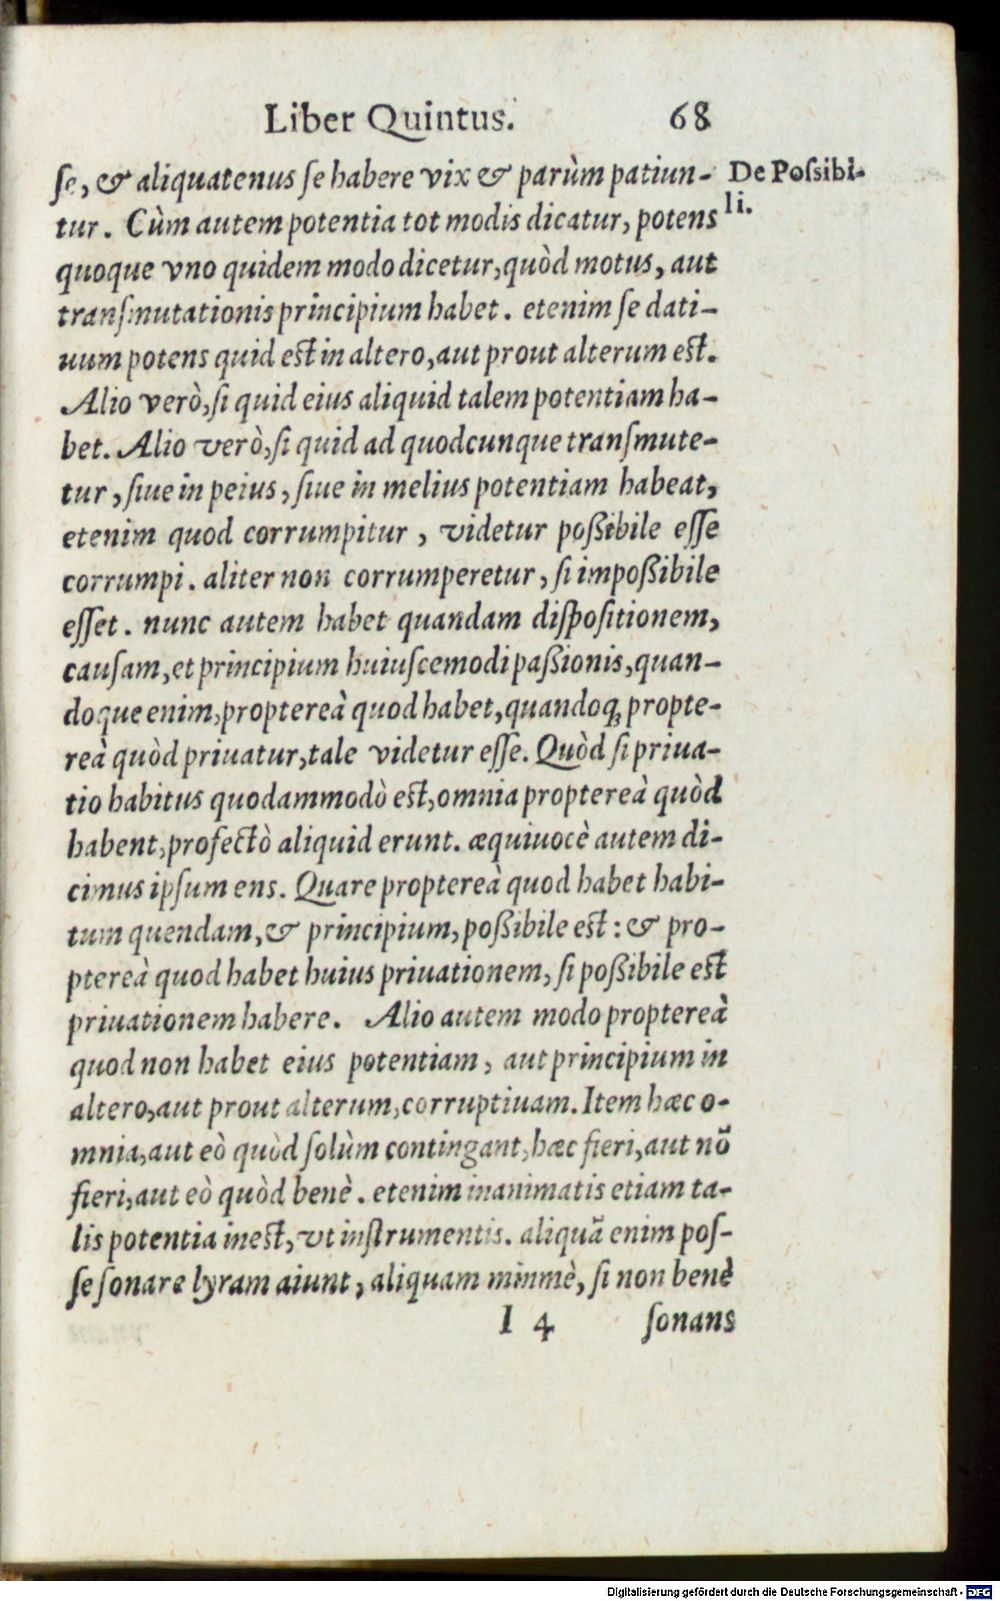 Liber Quintus. 68
se, & aliquatenus se habere vix & parùm patiun- De Possibi-
tur. Cùm autem potentia tot modis dicatur, potens li.
quoque vno quidem modo dicetur, quòd motus, aut
transmutationis principium habet. etenim se dati-
uum potens quid est in altero, aut prout alterum est.
Alio verò, si quid eius aliquid talem potentiam ha-
bet. Alio verò, si quid ad quodcunque transmute-
tur, siue in peius, siue in melius potentiam habeat,
etenim quod corrumpitur, videtur poßibile esse
corrumpi. aliter non corrumperetur, si impoßibile
esset. nunc autem habet quandam dispositionem,
causam, et principium huiuscemodi paßionis, quan-
doque enim, proptereà quod habet, quandoq; propte-
reà quòd priuatur, tale videtur esse. Quòd si priua-
tio habitus quodammodò est, omnia proptereà quòd
habent, profectò aliquid erunt. æquiuocè autem di-
cimus ipsum ens. Quare proptereà quod habet habi-
tum quendam, & principium, poßibile est: & pro-
ptereà quod habet huius priuationem, si poßibile est
priuationem habere. Alio autem modo proptereà
quod non habet eius potentiam, aut principium in
altero, aut prout alterum, corruptiuam. Item hæc o-
mnia, aut eò quòd solùm contingant, hæc fieri, aut nō
fieri, aut eò quòd benè. etenim inanimatis etiam ta-
lis potentia inest, vt instrumentis. aliquā enim pos-
se sonare lyram aiunt, aliquam minmè, si non benè
I 4 sonans
Digitalisierung gefördert durch die Deutsche Forschungsgemeinschaft - DFG